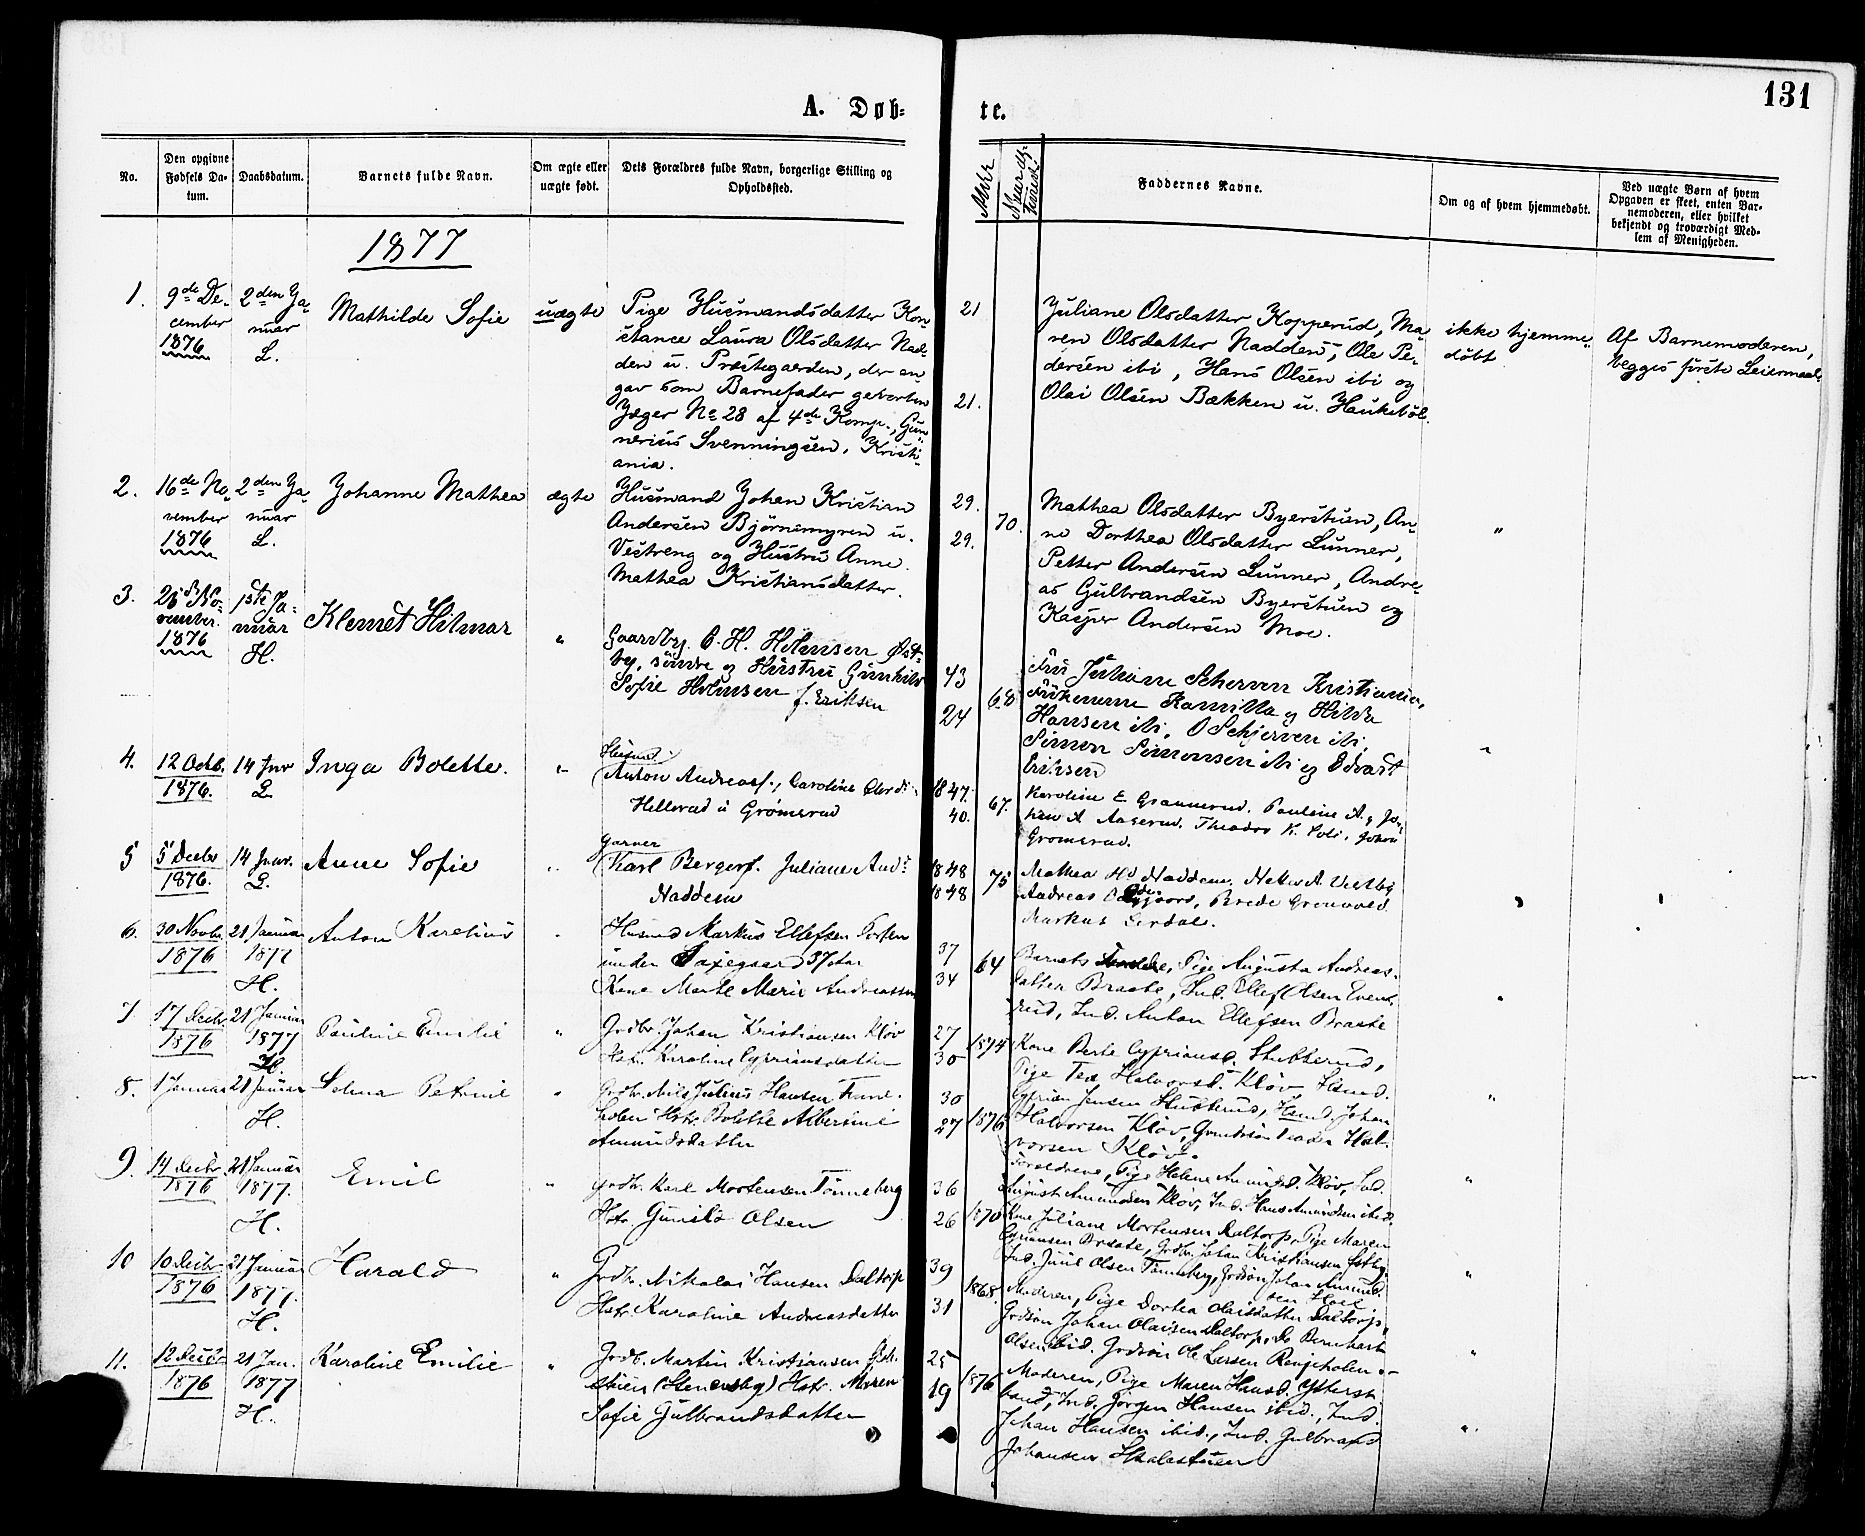 131
A. Døb-
te.
No.
Den opgivne
Fødsels Da-
tum.
Daabsdatum.
Barnets fulde Navn.
Om ægte eller
uægte født.
Dets Forældres fulde Navn, borgerlige Stilling og
Opholdssted.
Faddernes Navne.
Om og af hvem hjemmedøbt.
Ved uægte Børn af hvem
Opgaven er skeet, enten Bar-
nemoderen, eller hvilket
bekjendt og troværdigt Med-
lem af Menigheden.
1877
1.
9de De-
cember
1876
2den Ja
nuar
L.
Mathilde Sofie
uægte
Pige Husmandsdatter Kon-
stance Laura Olsdatter Nad-
den u. Præstegaarden, der an
gav som Barnefader gevorben
Jæger No 28 af 4de Komp., Gun-
nerius Svenningsen, Kristi-
ania.
21
21.
Juliane Olsdatter Kopperud, Ma
ren Olsdatter Nadden, Ole Pe-
dersen ibi, Hans Olsen ibi og
Olai Olsen Bækken u.
ikke hjemme-
døbt
Af Barnemoderen,
begges første Leiermaal
2.
16de No
vember
1876
2den Ja
nuar
L.
Johanne Mathea
ægte
Husmand Johan Kristian
Andersen Bjørnemyren u.
Vestreng og Hustru Anne
Mathea Kristiansdatter.
29.
29.
70.
Mathea Olsdatter Byerstuen, An-
ne Dorthea Olsdatter Lunner,
Petter Andersen Lunner, Andre-
as Gulbrandsen Byerstuen og
Kasper Andersen Moe.
"
3.
No-
vember.
1876
1ste Ja-
nuar
H.
Klemet Hilmar
"
Gaardbr. C. H. Holmsen Øst-
by, søndre og Hustru Gunhild
Sofie Holmsen f. Eriksen
43
24
68
Fru Scherven Kristiania,
Frøknerne Kamilla og Hilda
Hansen ibi, O Schjerven ibi,
Simon Simonsen ibi og Edvart
Eriksen
"
4.
12 Octb.
1876.
14 Jnr
L.
Inga Bolette.
"
Husmd.
Anton Andreass., Caroline
u Grømsrud
1847.
40.
67.
Karoline E Pauline A.
Aaserud. Theodor K.
Grømsrud.
5
5 Decbr
1876.
14 Jnar.
L.
Anne Sofie
"
Garver
Karl Bergers. Juliane
Nadden
1848
1848
75
Mathea Nadden. A. Vestby
Andreas Brede Grønvold
Markus
6.
30 Novbr.
1876
21 Januar
1877
H.
Anton Karelius
Husmd Markus Ellefsen
under
Kone Marte Marie
37
34
64
Barnets Pige Augusta Andreas-
datter Braate, Ind. Ellef Olsen
rud, Ind. Anton Ellefsen Braate
7
17 Decbr.
1876
21 Januar
1877
H.
Pauline Emilie
"
Grdbr. Johan Kristiansen Kløv
Hstr. Karoline Cypriansdatter
27
30
1874
Kone Berte Cypriansd. Stubberud,
Pige Halvorsd. Kløv
Cyprian Jensen Stubberud, Johan
Halvorsen Kløv,
vorsen Kløv.
"
8.
1 Januar
21 Januar
H.
Selma Petrine
"
Grdbr. Nils Julius Hansen
Hstr. Bolette Albertine
Amundsdatter
30
27
1876
Forældrene, Pige Helene Amundsd. Kløv, Ind.
August Amundsen Kløv, Ind. Hans Amundsen ibid.
"
9.
14 Decbr
1876
21 Januar
1877.
H.
Emil
"
Grdbr. Karl Mortensen Tønneberg
Hstr. Gunilda Olsen
36
26
1870
Kone Juliane Mortensen Daltorp, Pige Maren
Cypriansen Braate, Grdbr. Johan Kristiansen
Ind. Juul Olsen Tønneberg, Johan Amund-
sen
"
10
10 Decbr
1876
21 Januar
1877.
H.
Harald
"
Grdbr. Nikolai Hansen Daltorp
Hstr. Karoline Andreasdatter
39
31
1868.
Moderen, Pige Dortea Olaisdatter Daltorp,
Grdsøn Johan Olaisen Daltorp, Do Bernhart
Olsen ibid. Grdsøn Ole Larsen
"
11.
12 Decbr
1876
21 Jan.
1877
H.
Karoline Emilie
"
Grdb. Martin Kristiansen
(Stenersby) Hstr. Maren
Sofie Gulbrandsdatter
25
19
1876
Moderen, Pige Maren Hansd.
Ind. Jørgen Hansen ibid., Ind.
Johan Hansen ibid., Ind. Gulbrand
Johansen
"